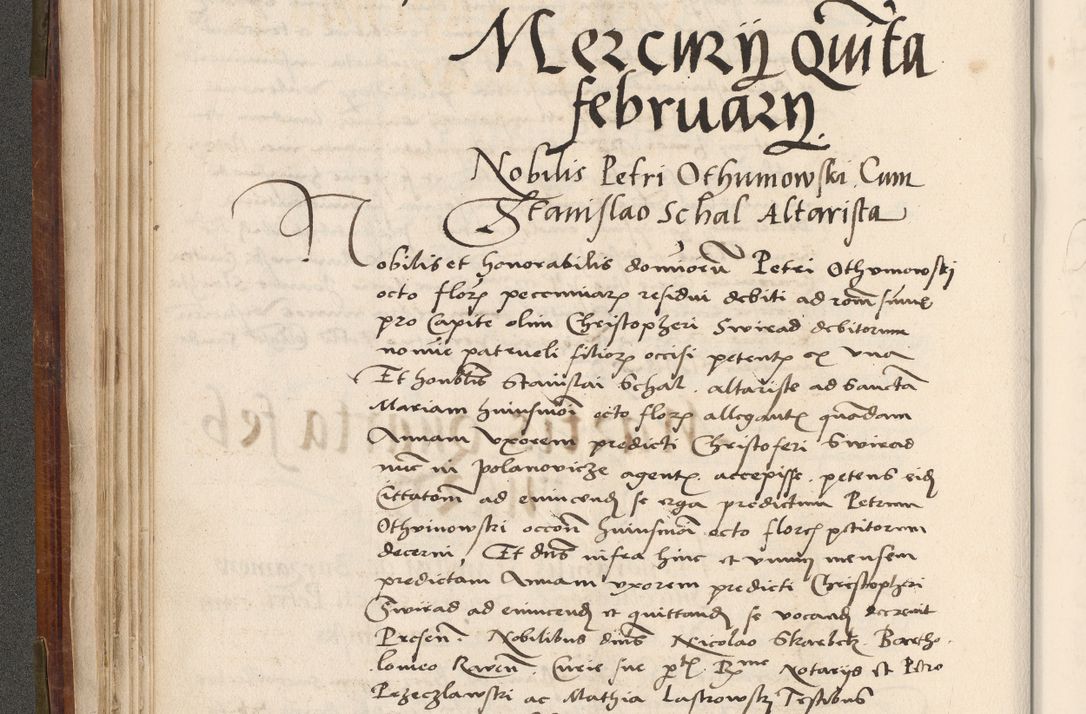 Mercurÿ Quīta
februarÿ.
Nobilis Petri Othumowski. Cum
Stanislao Schal Altarista
Nobilis et honorabilis domnorū Petri Othumowski
octo flor pecuniar residui debiti ad
pro Capite olim Christopheri Swirad debitorum
patrueli filior occisi petent ex una
Et honblis Stanislai Schal. altariste ad Sanctā
Mariam octo flor allegant quādam
Annam Uxorem predicti Christoferi Swirad
nūc in Polanovicze agent accepisse. petens
Cittatom ad evincend se erga predictum Petrum
Othvinowski occon octo flor petitorum
decerni. Et dns infra hinc et unum mensem
predictam Annam uxorem predicti Christopheri
Swirad ad evincend et quittand se vocand decrevit
Presen. Nobilibus dnis Nicolao Skarbek. Bartho
lomeo Curie sue Rme Notarÿs et Petro
Przeczlawski ac Mathia Lastrowski Testibus